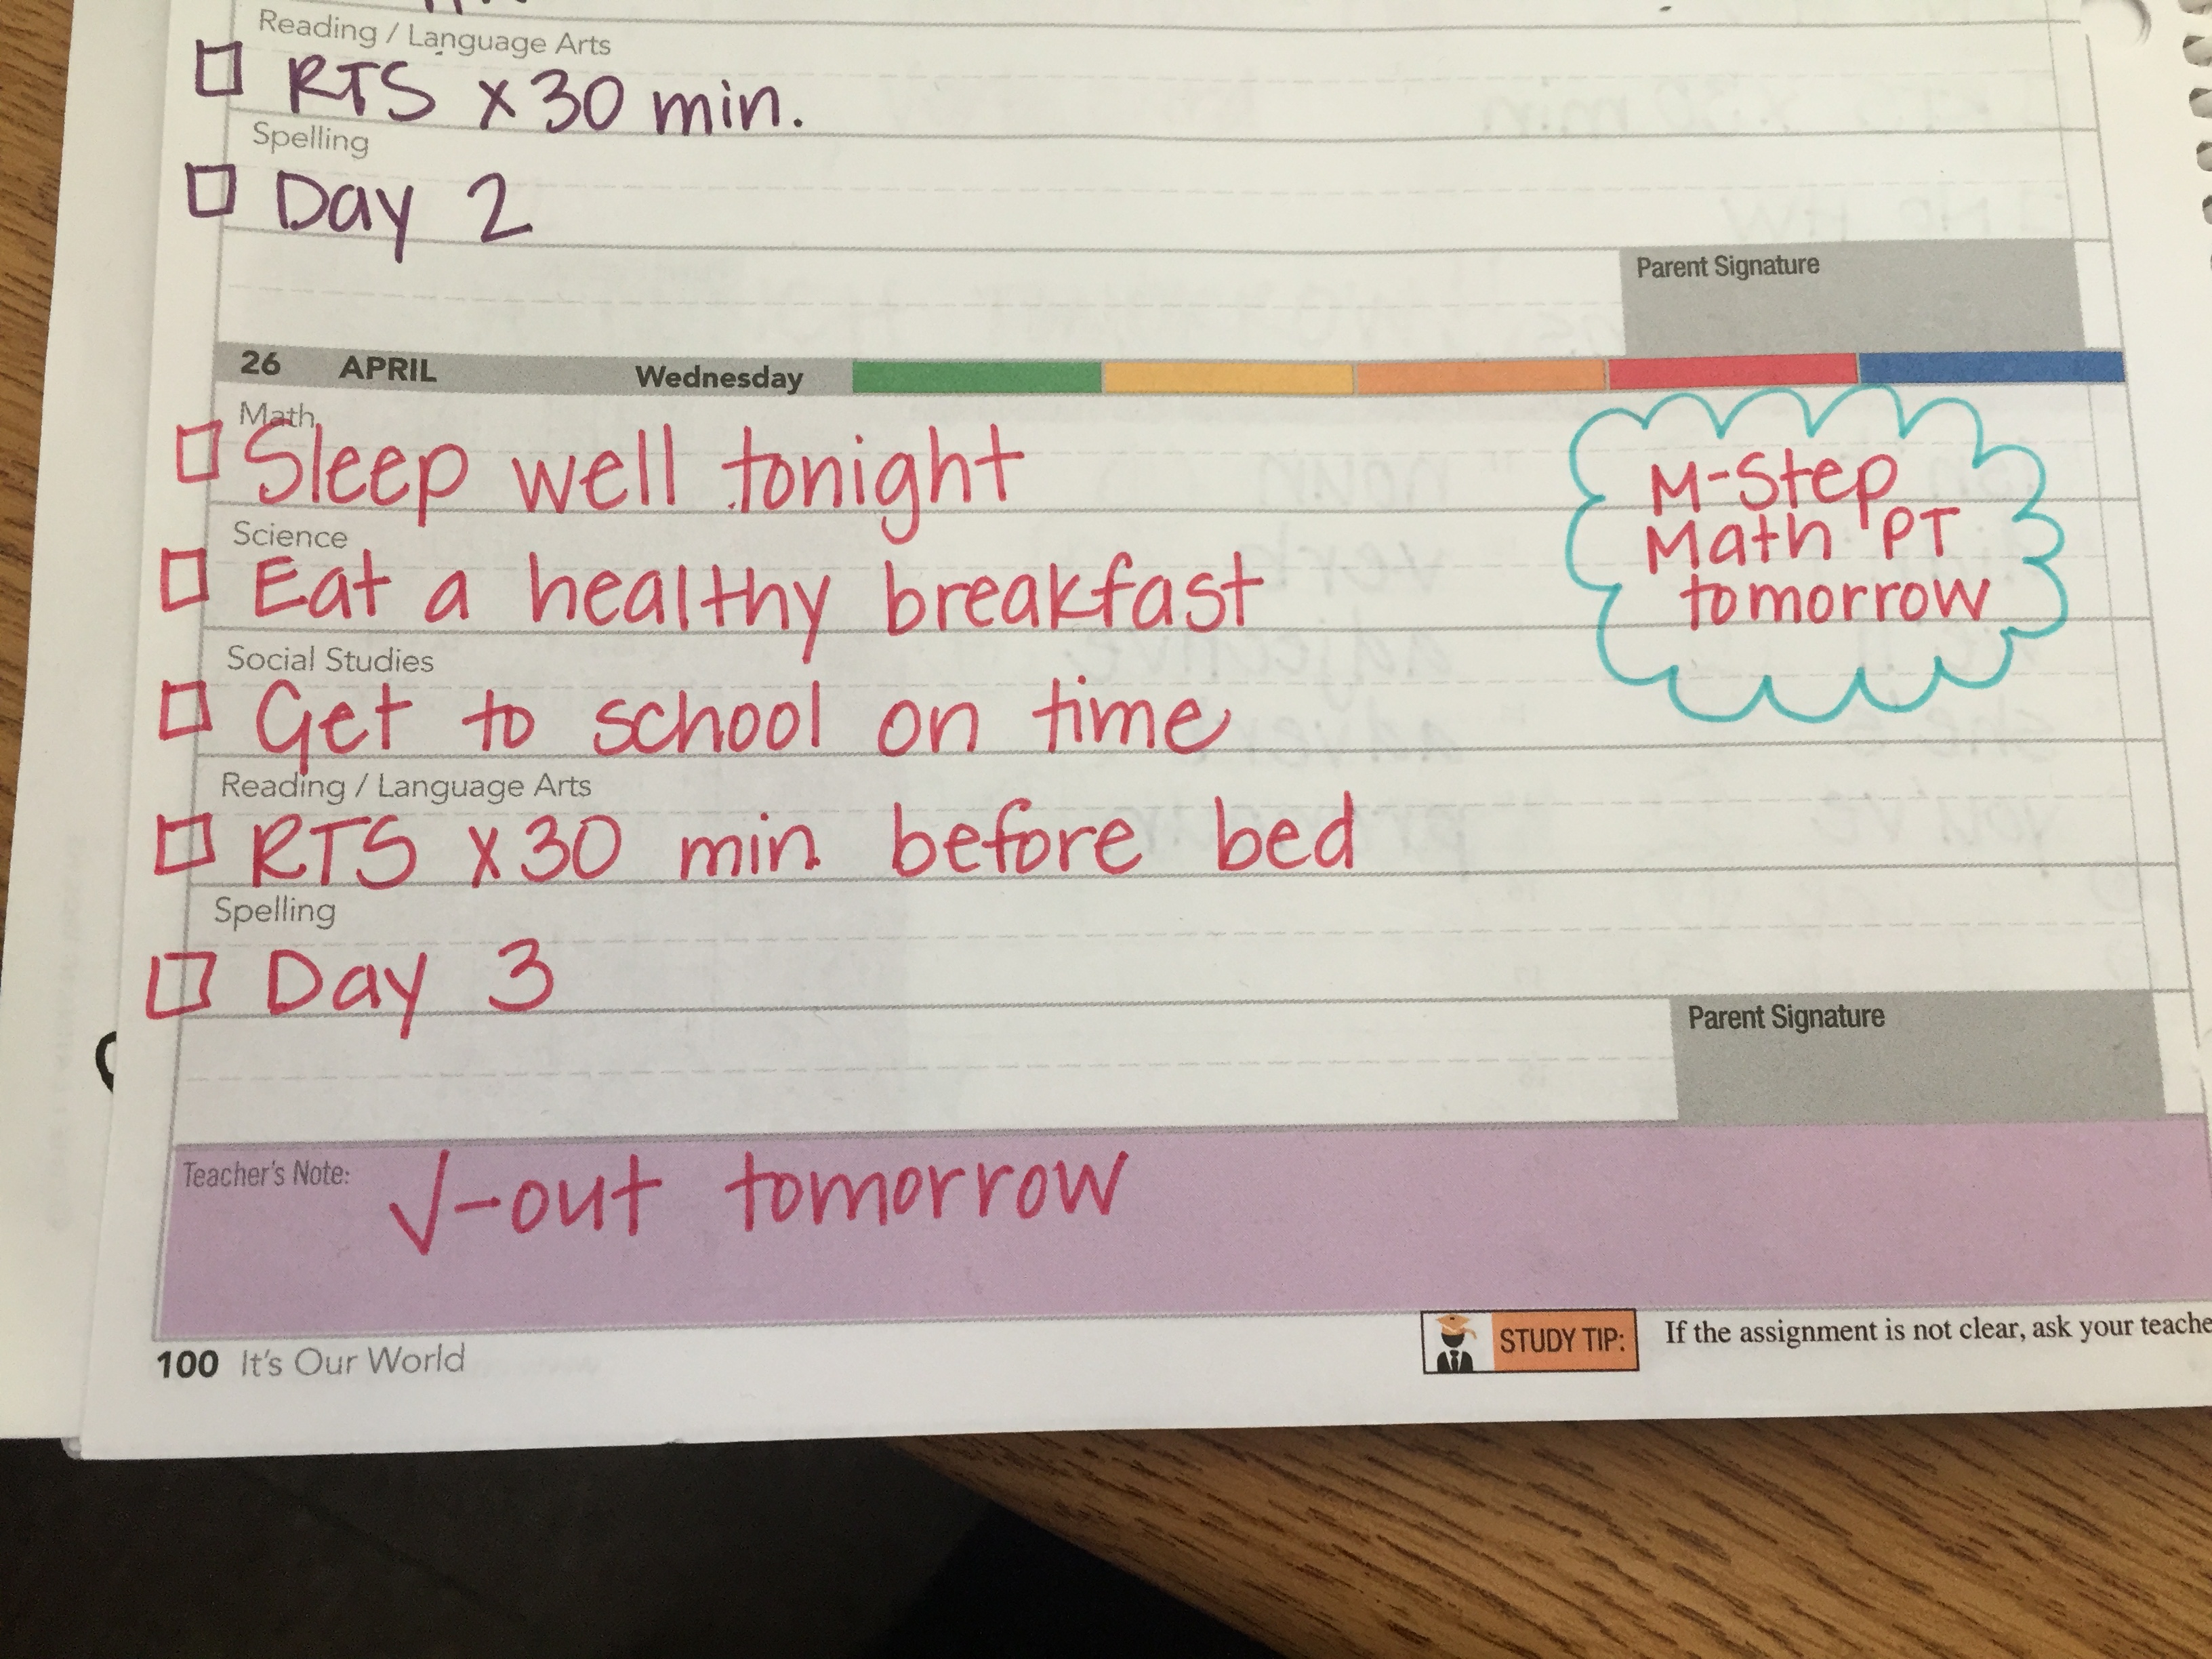 Reading / Language Arts
RTS x 30 min.
Spelling
Day 2
Parent Signature
26 APRIL Wednesday
Math
Sleep well tonight
Science
Eat a healthy breakfast
Social Studies
Get to school on time
Reading / Language Arts
RTS x 30 min before bed
Spelling
Day 3
M-Step
Math PT
tomorrow
Parent Signature
Teacher's Note: √-out tomorrow
100 It's Our World
STUDY TIP: If the assignment is not clear, ask your teache